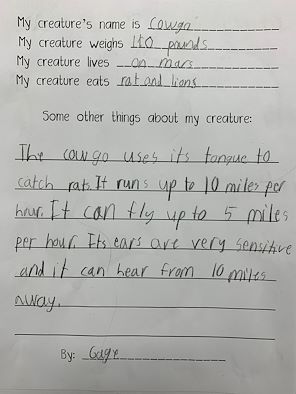 My creature's name is Cowgo
My creature weighs 110 pounds
My creature lives on mars
My creature eats rat and lions
Some other things about my creature:
The cowgo uses its tongue to
catch rats. It runs up to 10 miles per
hour. It can fly up to 5 miles
per hour. Its ears are very sensitive
and it can hear from 10 miles
away.
By: Gage